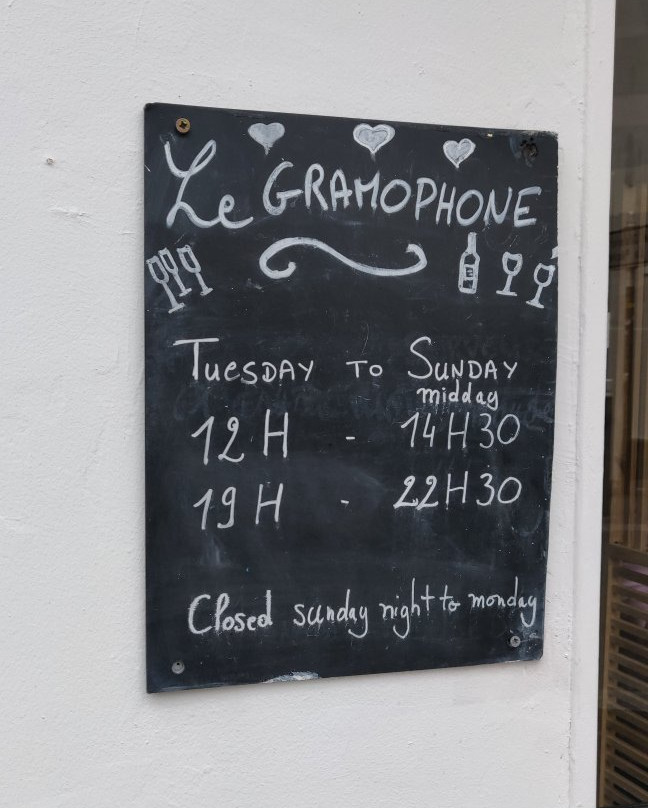 Le GRAMOPHONE
TuesDAY TO SUNDAY
midday
12H - 14H30
19H - 22H30
Closed sunday night to monday